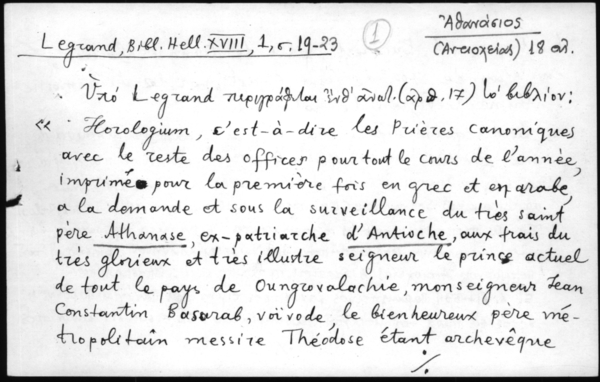 Ἀθανάσιος
(Ἀντιοχείας) 18 αἰ.
Legrand, Bibl. Hell. XVIII, 1, σ. 19-23
1
Ὑπό Legrand περιγράφεται (ἀριθ. 17) τό βιβλίον:
« Horologium, c'est-à-dire les Prières canoniques
avec le reste des offices pour tout le cours de l'année,
imprimé pour la première fois en grec et en arabe,
a la demande et sous la surveillance du très saint
père Athanase, ex-patriarche d'Antioche, aux frais du
très glorieux et très illustre seigneur le prince actuel
de tout le pays de Oungrovalachie, monseigneur Jean
Constantin Basarab, voïvode, le bienheureux père mé-
tropolitain messire Théodose étant archevêque
./.